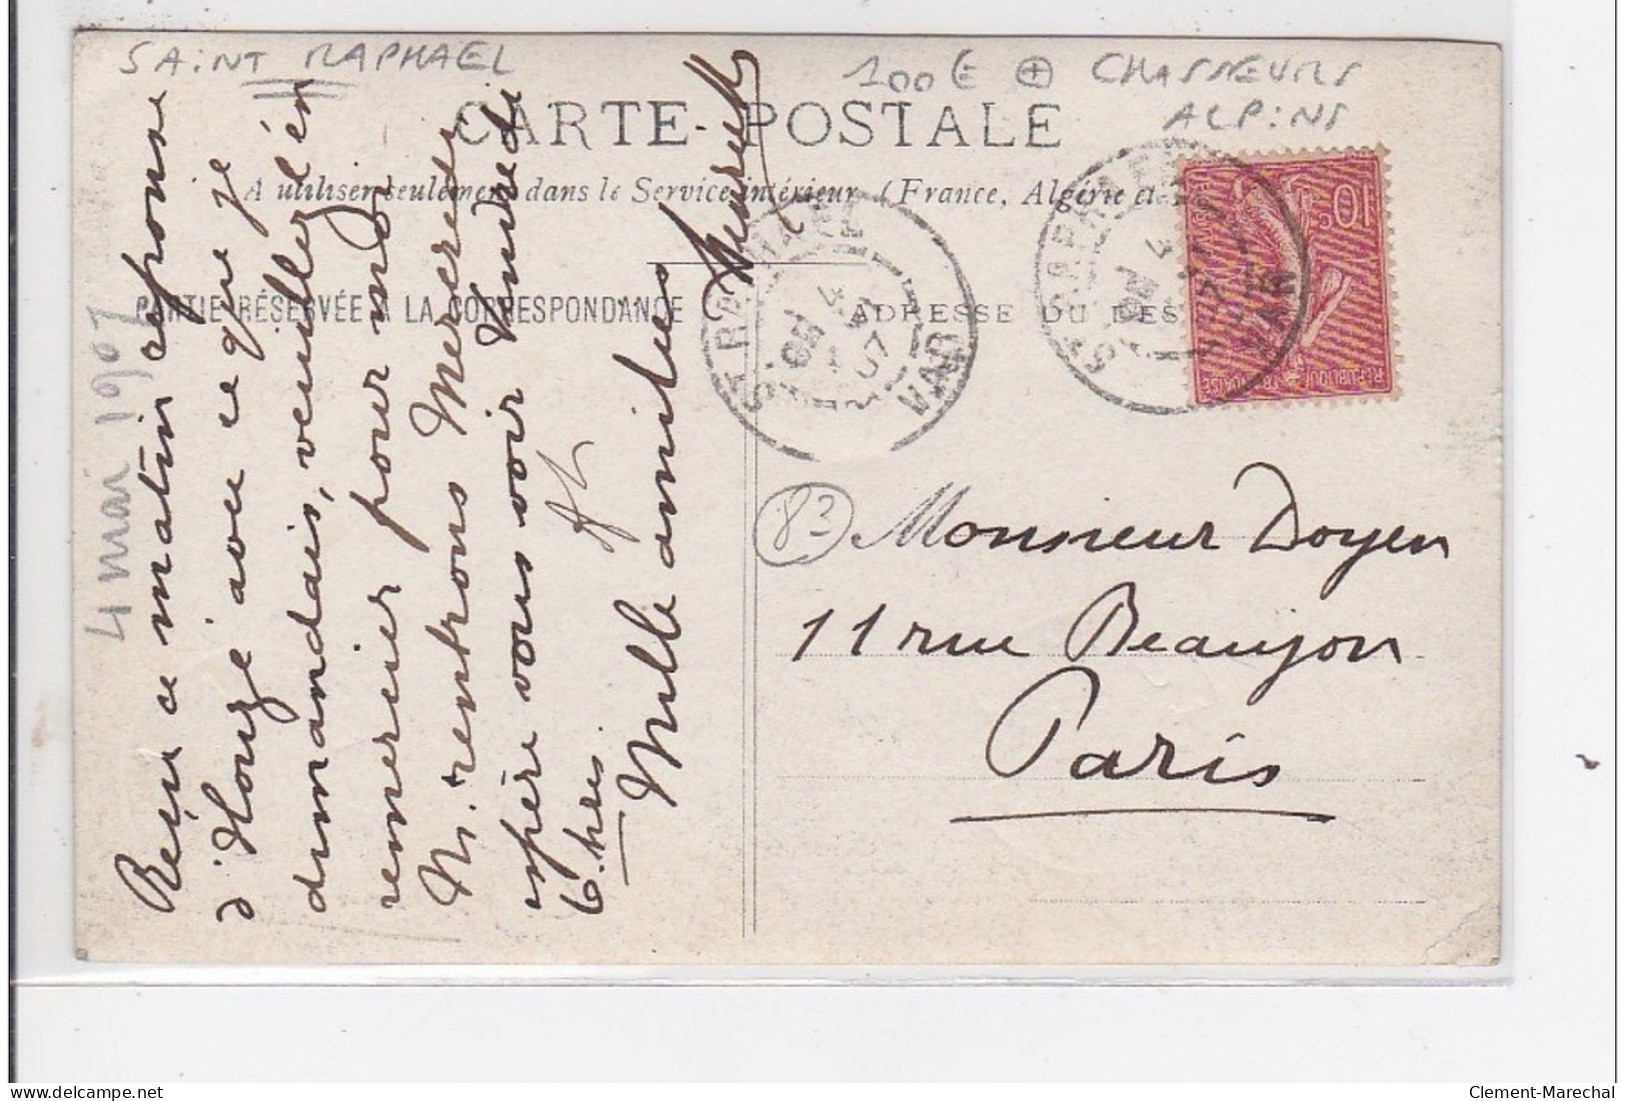 SAINT RAPHAEL
100€ ⊕ CHASSEURS
ALPINS
CARTE POSTALE
A utiliser seulement dans le Service intérieur (France, Algérie et
PARTIE RÉSERVÉE A LA CORRESPONDANCE
ADRESSE DU DES
ST RAPHAEL
4
07
VAR
ST RAPHAEL
4
VAR
10 c
REPUBLIQUE FRANCAISE
4 mai 1907
Reçu ce matin réponse
d' avec ce que je
demandais, veuillez l'en
remercier pour moi
N. rentrons Mercredi
espère vous voir
6 hres.
Mille amitiés
83
Monsieur Doyen
11 rue Beaujon
Paris
delcampe.net
Clement-Marechal